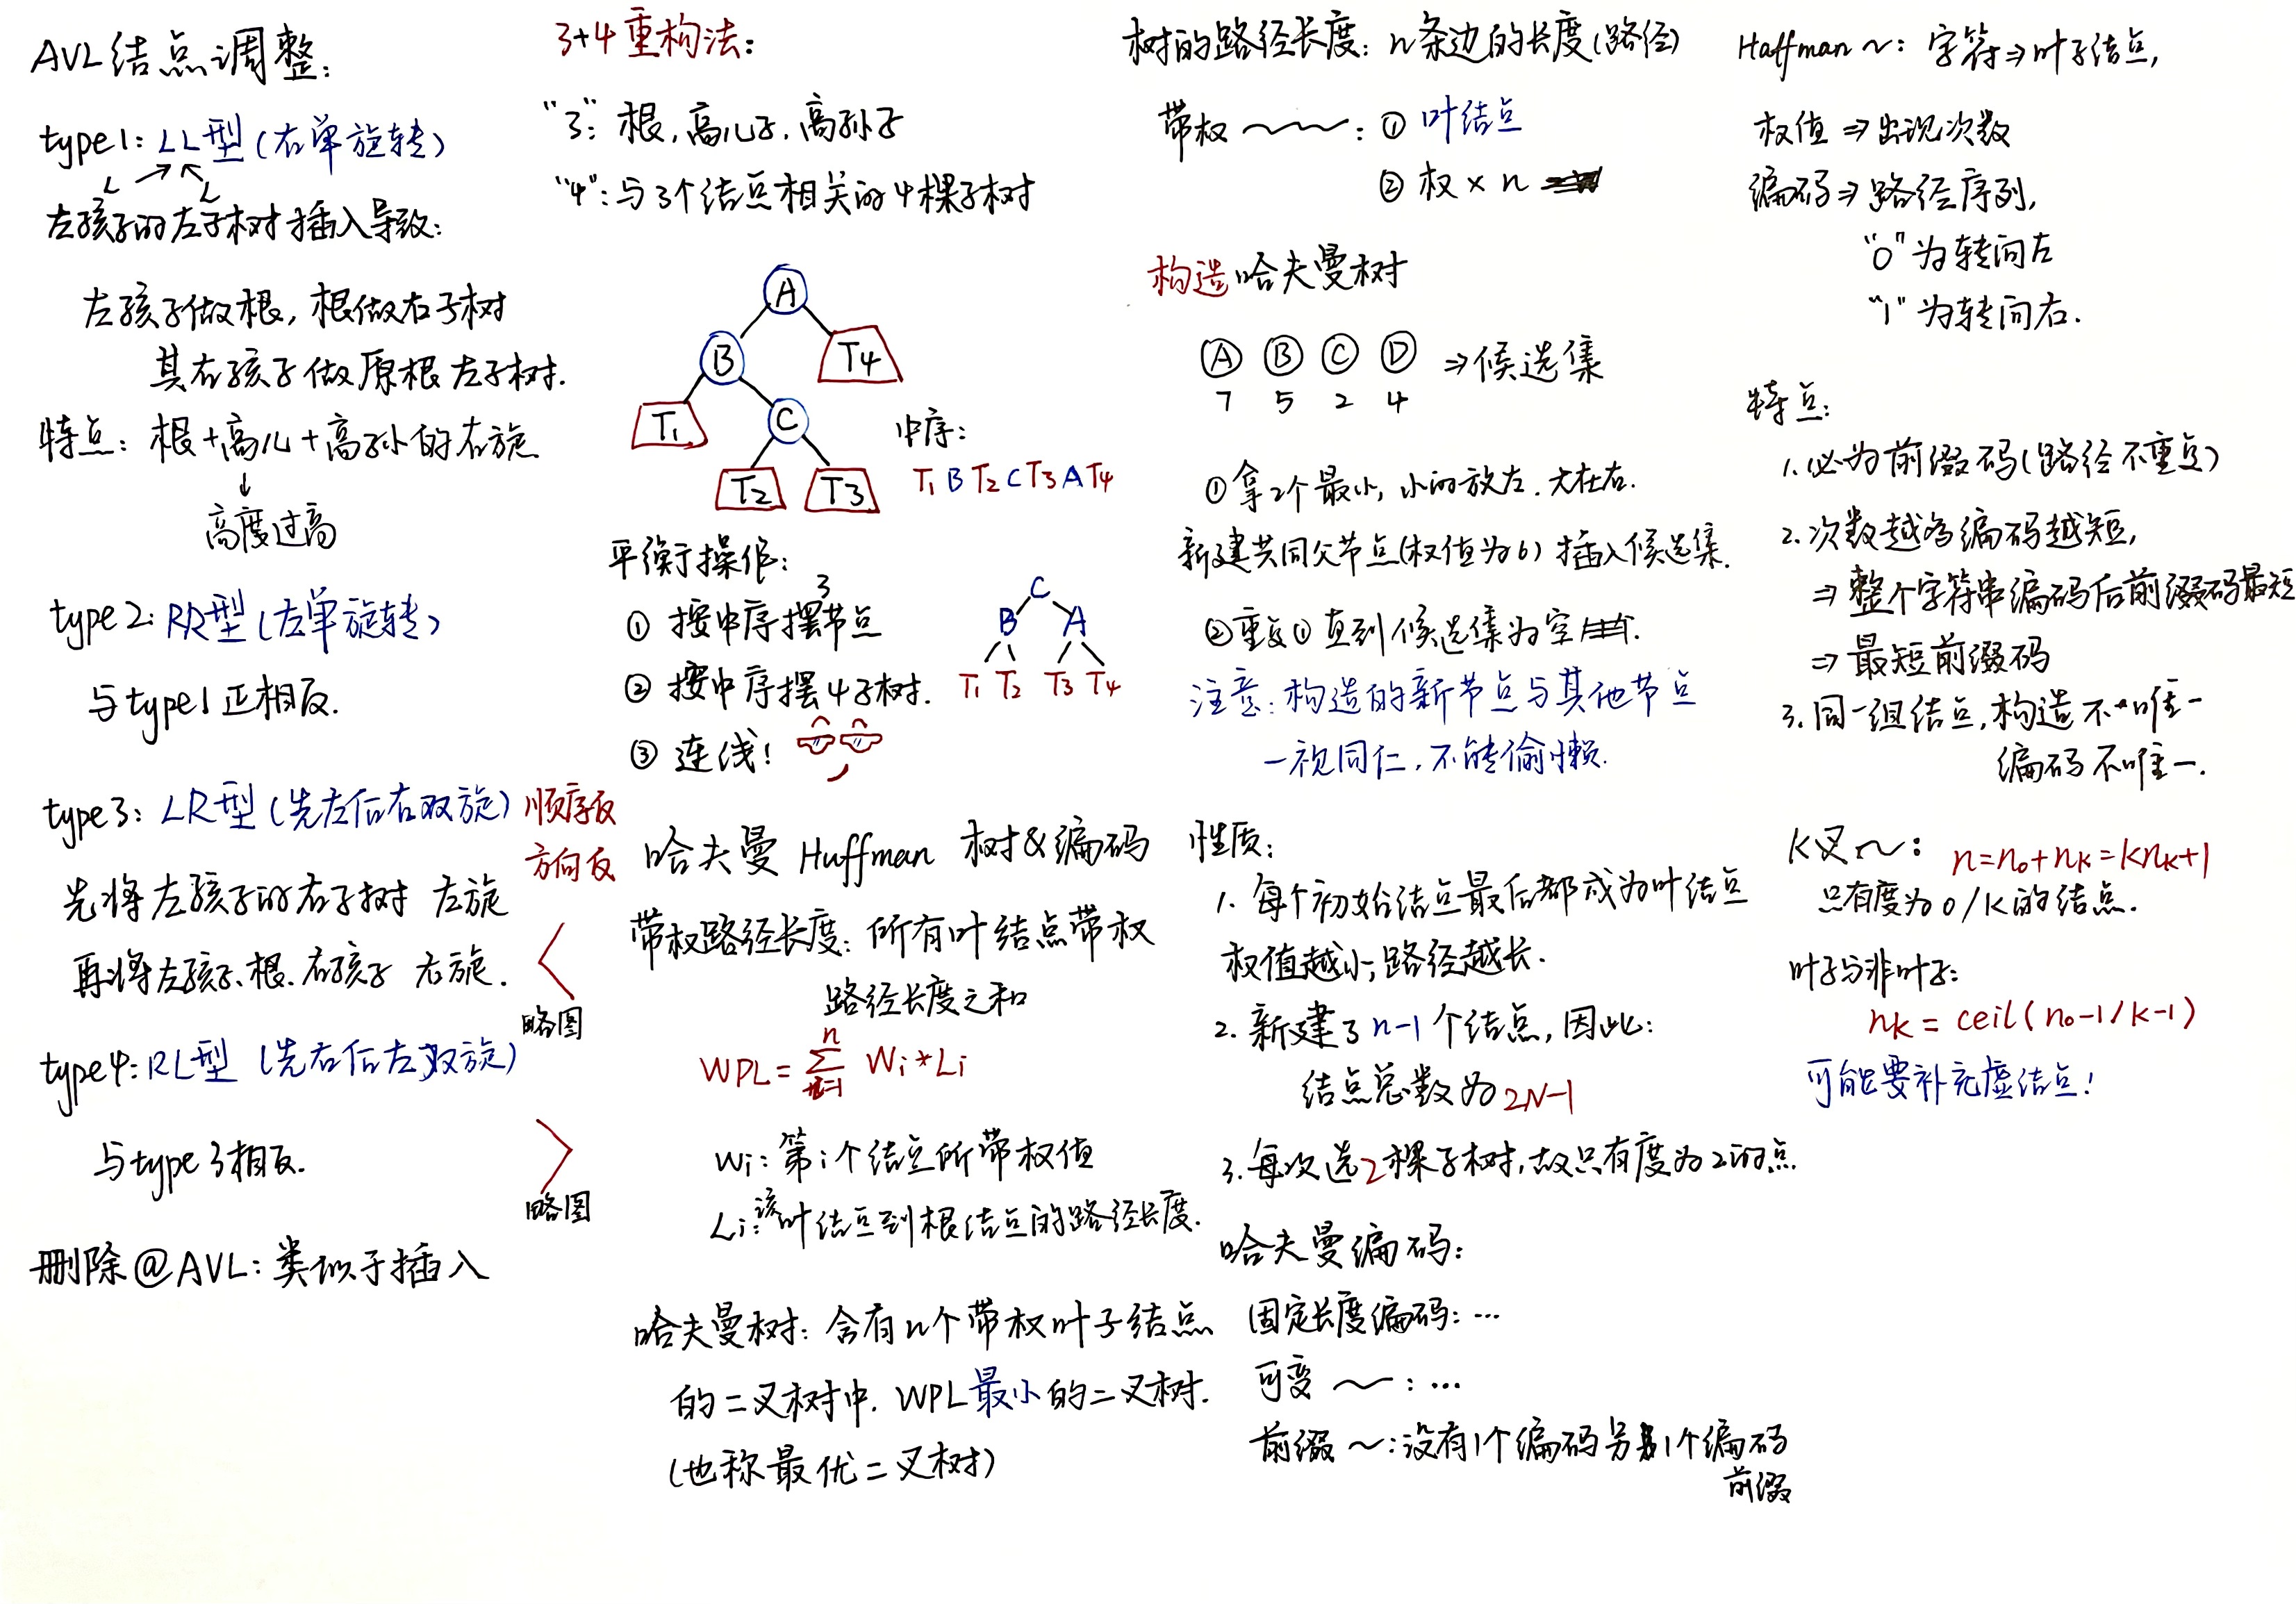 AVL结点调整：
type1: LL型 (右单旋转)
L L
左孩子的左子树插入导致：
左孩子做根, 根做右子树
其右孩子做原根左子树.
特点：根+高儿+高孙的右旋
↓
高度过高
type2: RR型 (左单旋转)
与type1正相反.
type3: LR型 (先左后右双旋) 顺序反
方向反
先将左孩子的右子树 左旋
再将左孩子、根、右孩子 右旋.
略图
type4: RL型 (先右后左双旋)
与type3相反.
略图
删除@AVL: 类似于插入
3+4重构法：
"3": 根, 高儿子, 高孙子
"4": 与3个结点相关的4棵子树
A
B T4
T1 C
T2 T3
中序：
T1 B T2 C T3 A T4
平衡操作：
① 按中序摆3节点
② 按中序摆4子树.
③ 连线!
C
B A
T1 T2 T3 T4
哈夫曼 Huffman 树&编码
带权路径长度: 所有叶结点带权
路径长度之和
WPL = Σ n i=1 Wi*Li
Wi: 第i个结点所带权值
Li: 该叶结点到根结点的路径长度.
哈夫曼树: 含有n个带权叶子结点
的二叉树中. WPL最小的二叉树.
(也称最优二叉树)
树的路径长度: n条边的长度(路径)
带权 ~~: ① 叶结点
② 权 × n
构造哈夫曼树
A B C D ⇒候选集
7 5 2 4
①拿2个最小, 小的放左. 大在右.
新建共同父节点(权值为6) 插入候选集.
②重复①直到候选集为空
注意: 构造的新节点与其他节点
一视同仁, 不能偷懒.
性质：
1. 每个初始结点最后都成为叶结点
权值越小, 路径越长.
2. 新建了n-1个结点, 因此:
结点总数为2N-1
3. 每次选2棵子树, 故只有度为2的点.
哈夫曼编码：
固定长度编码: …
可变 ~: …
前缀 ~: 没有1个编码另1个编码
前缀
Haffman ~: 字符⇒叶子结点,
权值⇒出现次数
编码⇒路径序列,
"0" 为转向左
"1" 为转向右.
特点：
1. 必为前缀码(路径不重复)
2. 次数越高编码越短,
⇒ 整个字符串编码后前缀码最短
⇒ 最短前缀码
3. 同一组结点, 构造不唯一
编码不唯一.
K叉~: n=n0+nk=knk+1
只有度为0/K的结点.
叶子与非叶子:
nk = ceil(n0-1/k-1)
可能要补充虚结点!